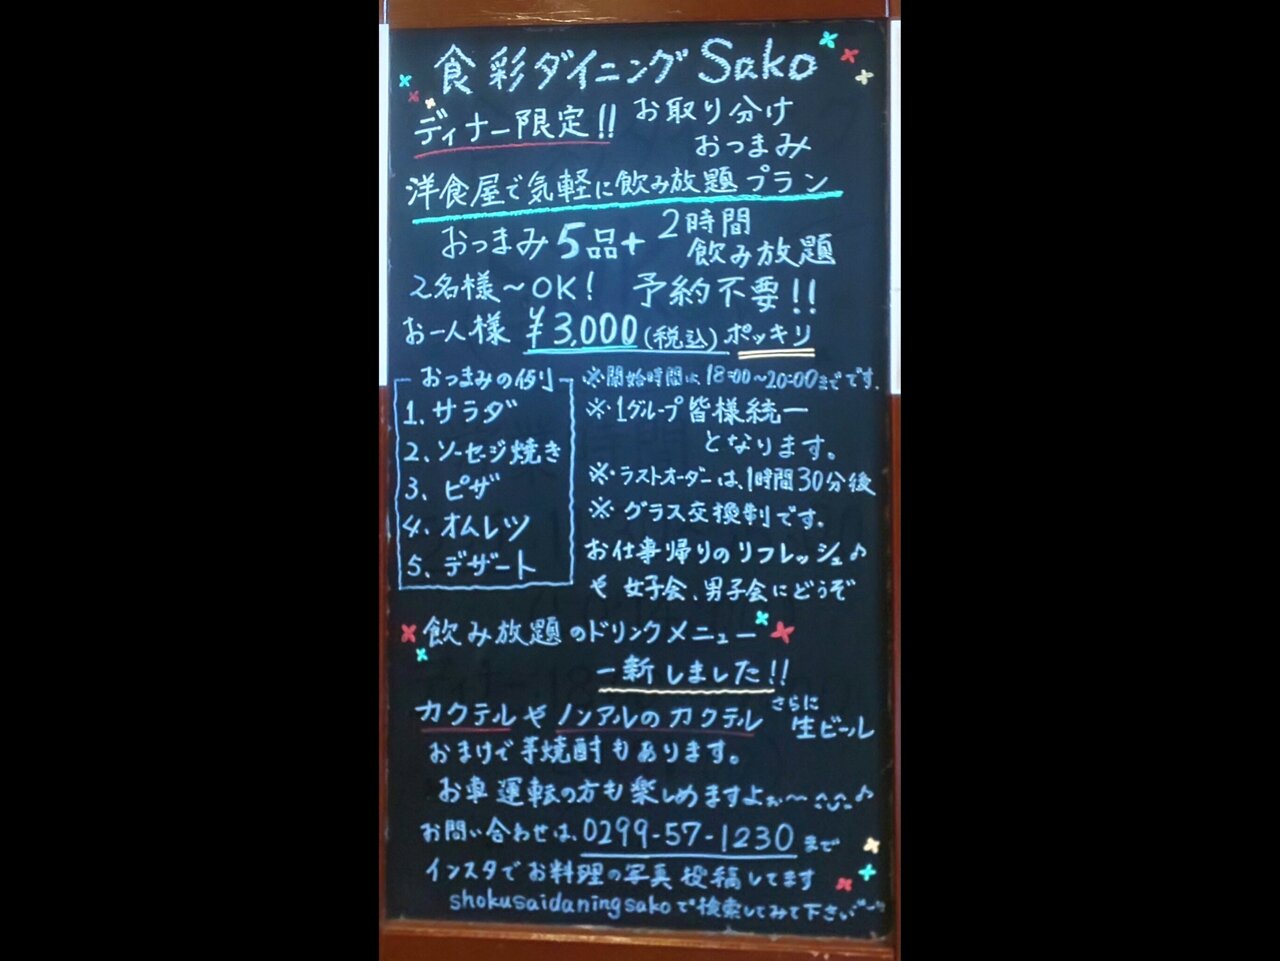 食彩ダイニングSako
ディナー限定!! お取り分け
おつまみ
洋食屋で気軽に飲み放題プラン
おつまみ5品+ 2時間
飲み放題
2名様～OK! 予約不要!!
お一人様 ¥3,000(税込)ポッキリ
おつまみの例
1. サラダ
2. ソーセージ焼き
3. ピザ
4. オムレツ
5. デザート
※開始時間は、18:00～20:00までです。
※1グループ皆様統一
となります。
※ラストオーダーは、1時間30分後
※グラス交換制です。
お仕事帰りのリフレッシュ♪
や 女子会、男子会にどうぞ
飲み放題のドリンクメニュー
一新しました!!
カクテルやノンアルのカクテル さらに
生ビール
おまけで芋焼酎もあります。
お車運転の方も楽しめますよぉ～^_^♪
お問い合わせは、0299-57-1230まで
インスタでお料理の写真投稿してます
shokusaidaningsakoで検索してみて下さい^-^